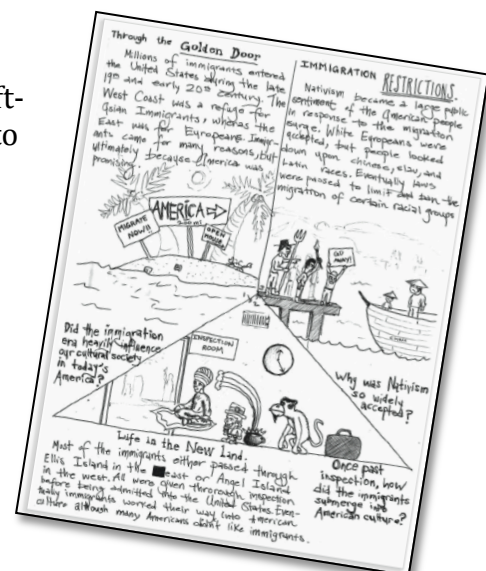 ft-
to
Through the Golden Door
Millions of immigrants entered
the United States during the late
19th and early 20th century. The
West Coast was a refuge for
Asian Immigrants, whereas the
East was for Europeans. Immigr-
ants came for many reasons, but
ultimately because America was
promising.
IMMIGRATION RESTRICTIONS.
Nativism became a large public
sentiment of the American people
in response to the migration
surge. White Europeans were
accepted, but people looked
down upon chinese, slav, and
Latin races. Eventually laws
were passed to limit and ban the
migration of certain racial groups
MIGRATE
NOW!!
AMERICA
OPEN
GO
AWAY!
Did the immigration
era heavily influence
our cultural society
in today's
America?
INSPECTION
ROOM
Why was Nativism
so widely
accepted?
Life in the New Land.
Most of the immigrants either passed through
Ellis Island in the east or Angel Island
in the west. All were given thorough inspection
before being admitted into the United States. Even-
tually immigrants worked their way into American
culture although many Americans didn't like immigrants.
Once past
inspection, how
did the immigrants
submerge into
American culture?